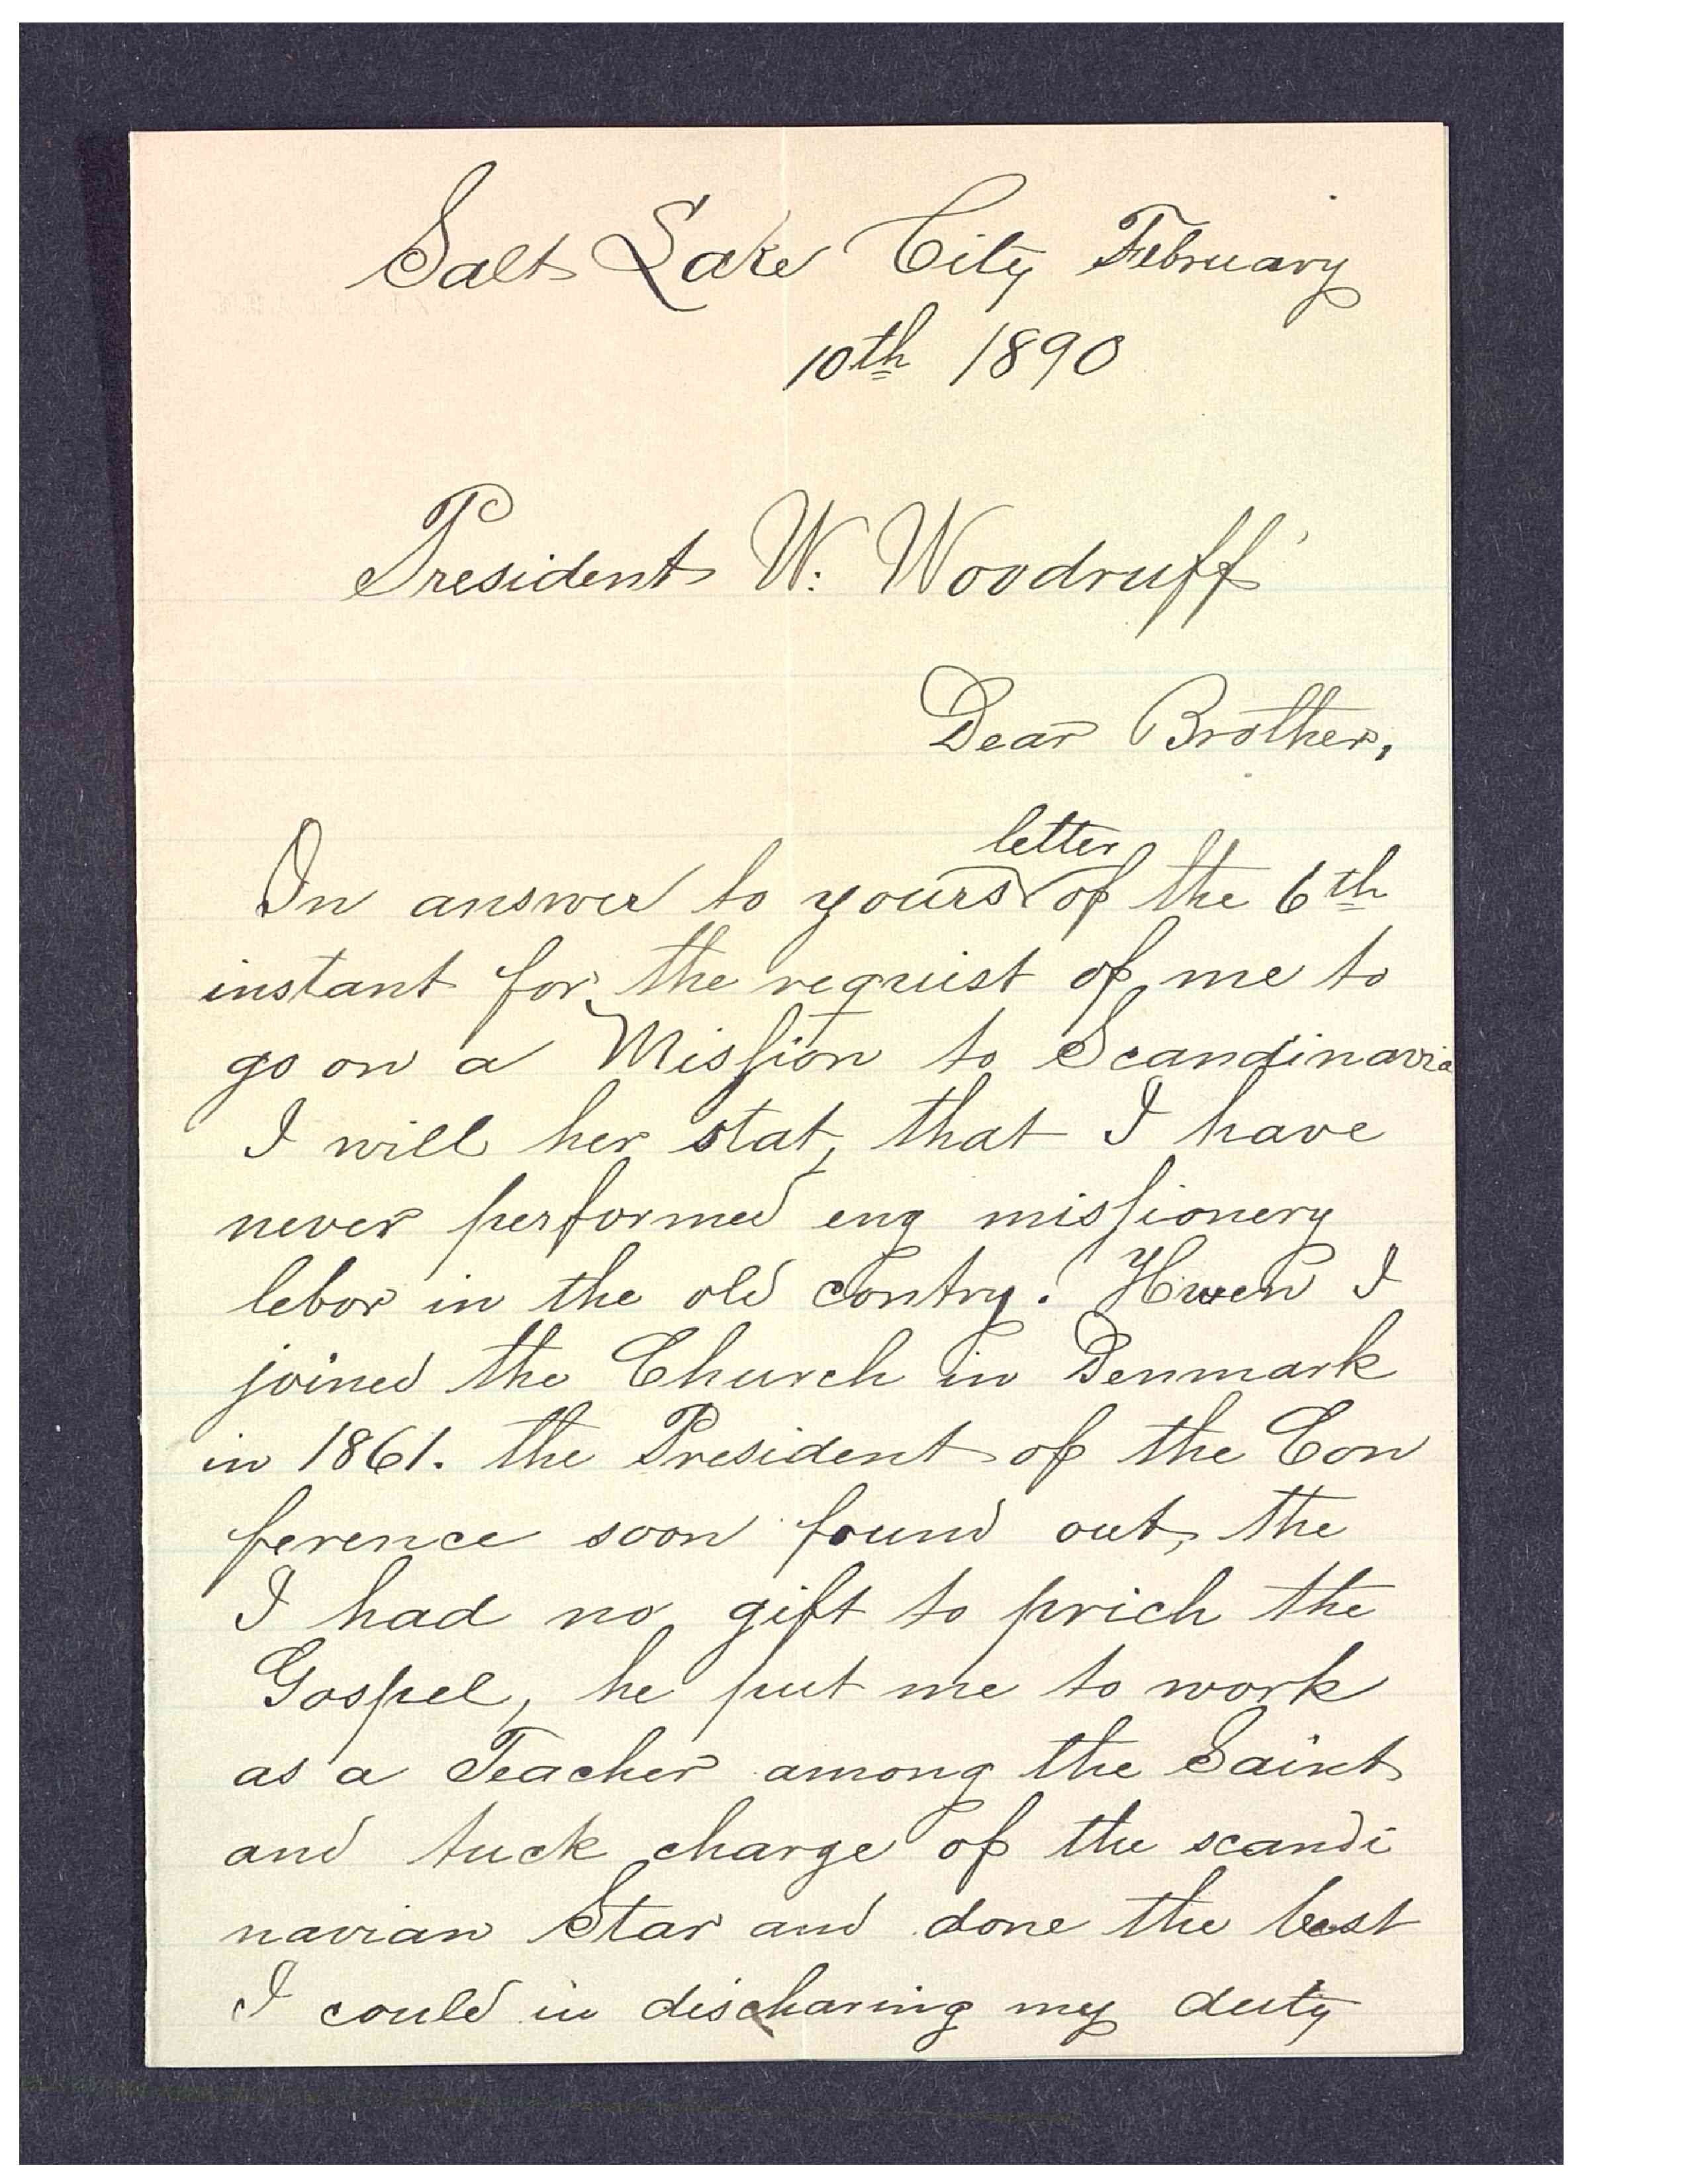 Salt Lake City February
10th 1890
President W. Woodruff
Dear Brother,
letter
In answer to yours of the 6th
instant for the requist of me to
go on a Mission to Scandinavia
I will her stat, that I have
never performed eny missionery
lebor in the old contry. Hwen I
joined the Church in Denmark
in 1861. the President of the Con
ference soon found out, the
I had no gift to prich the
Gospel, he put me to work
as a Teacher among the Saint
and tuck charge of the scandi
navian Star and done the best
I could in discharing my duty